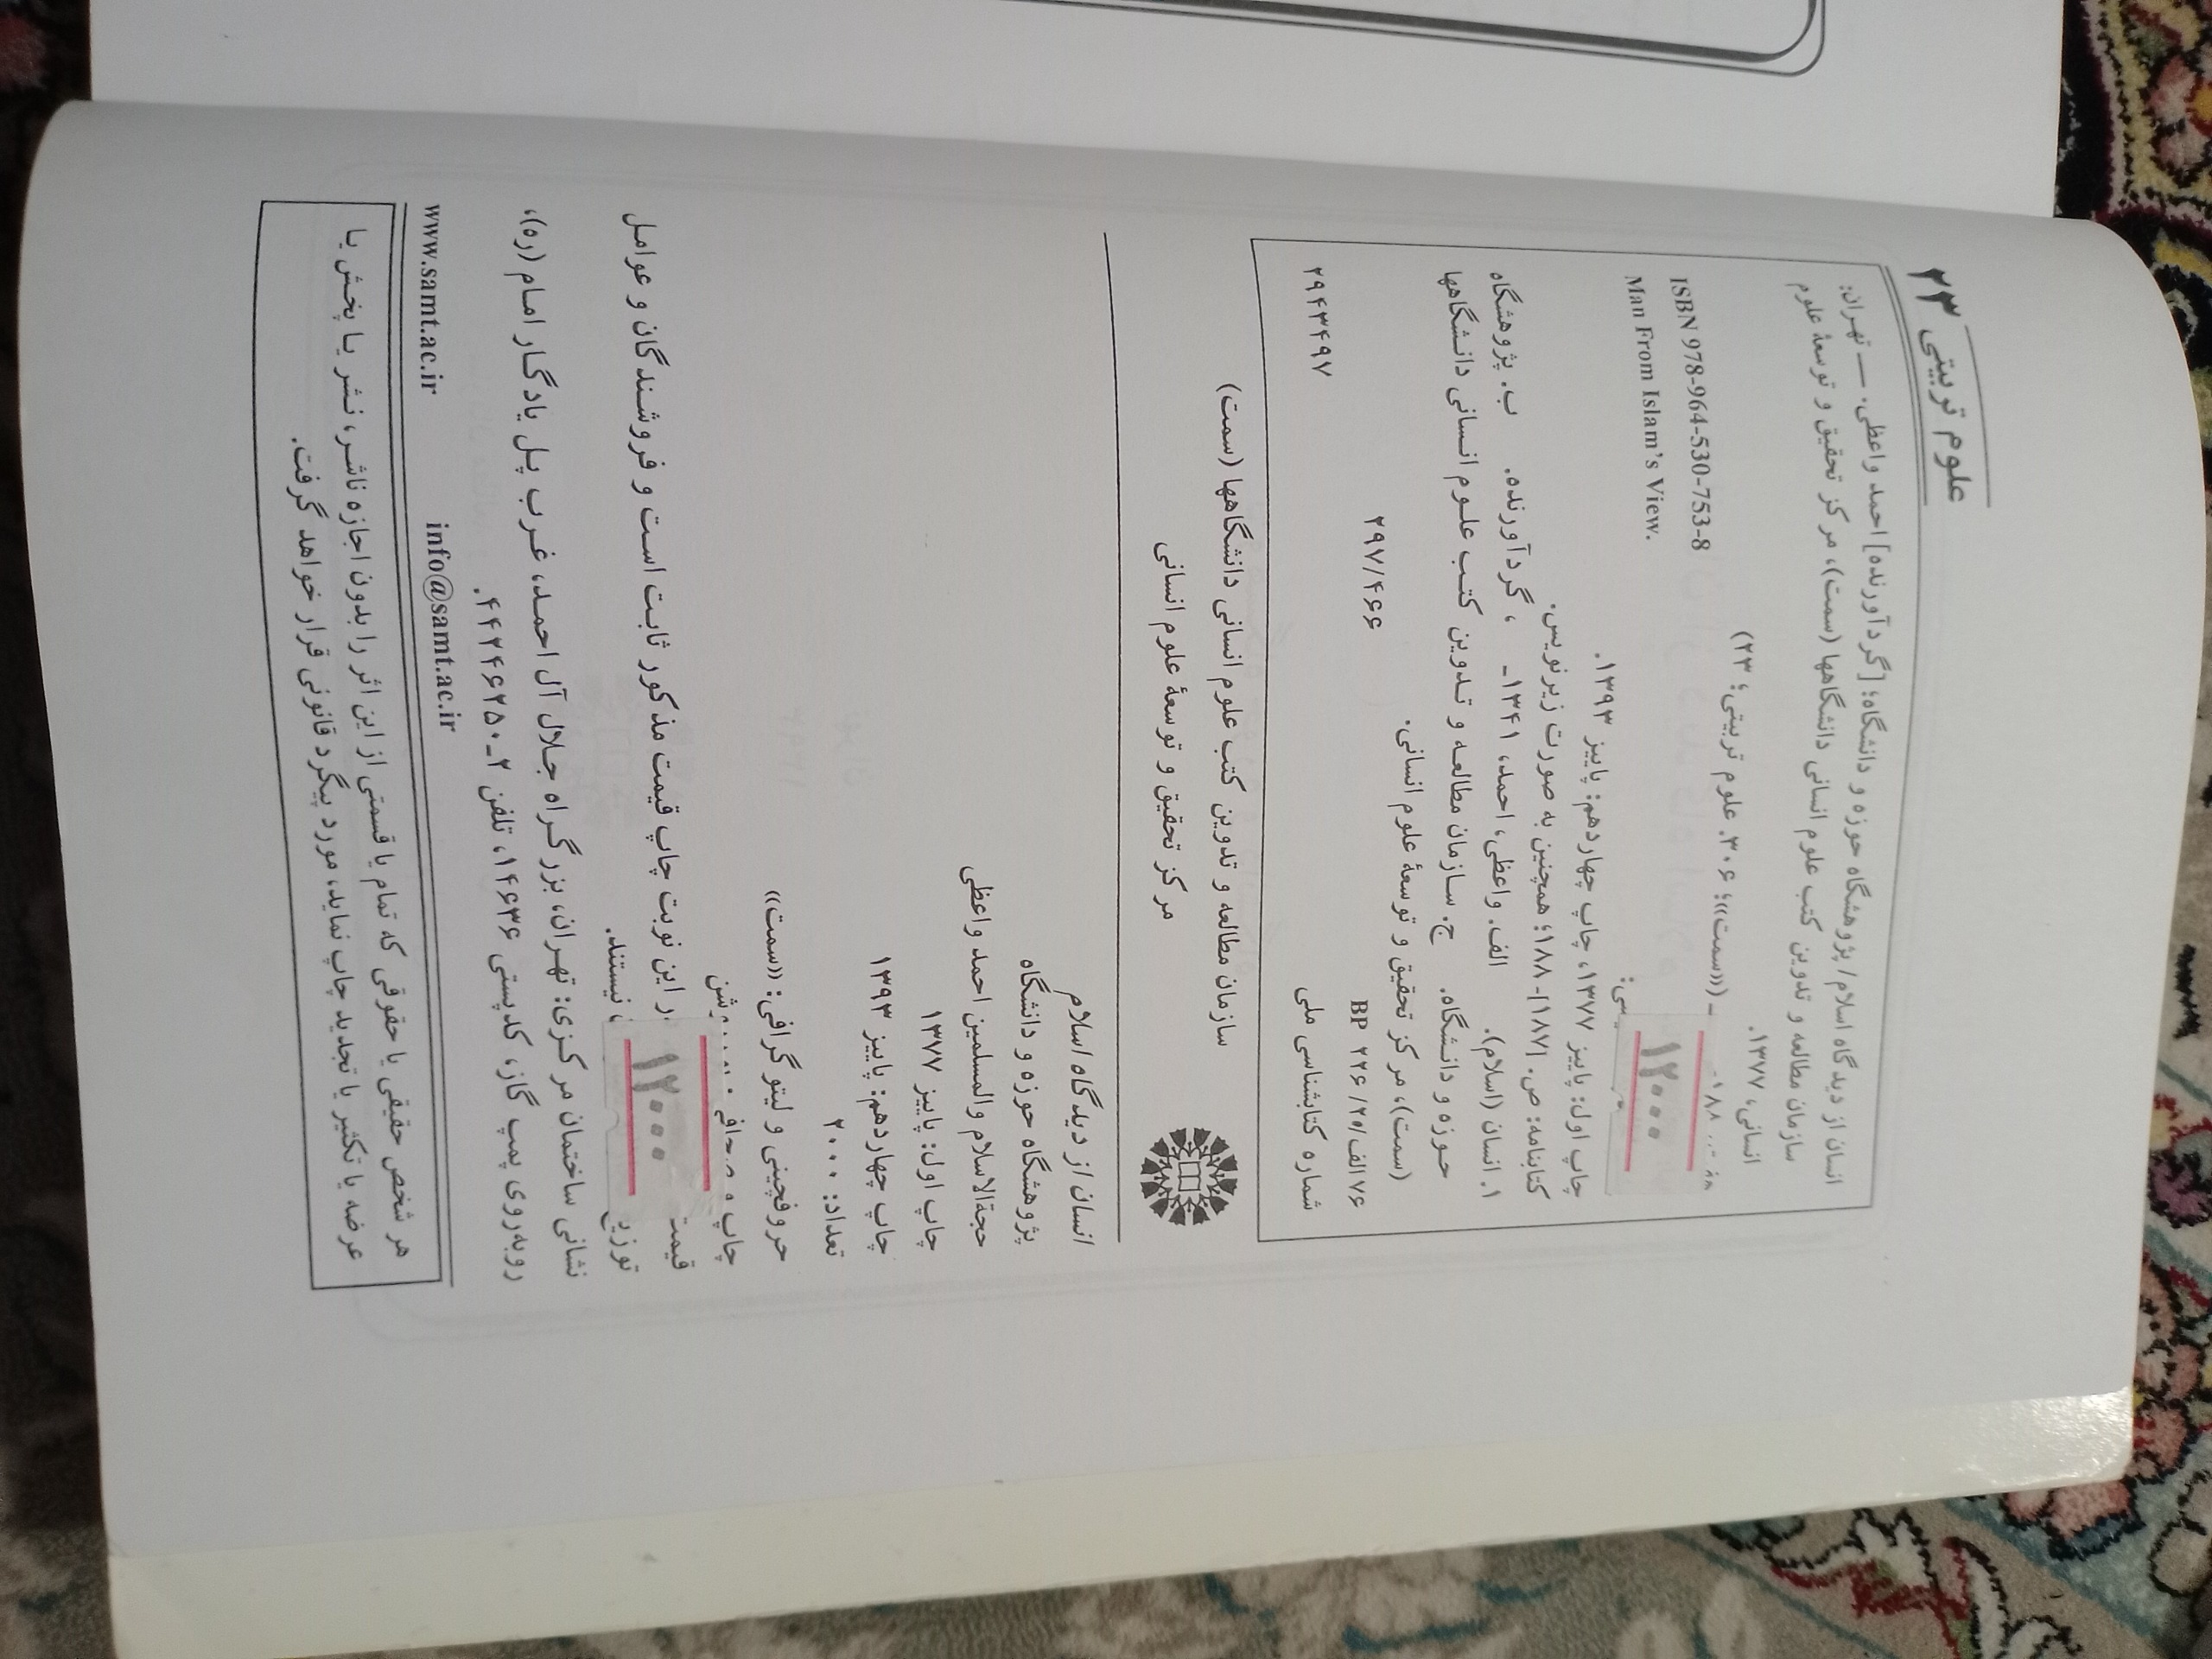 علوم تربیتی ۲۳
انسان از دیدگاه اسلام/ پژوهشگاه حوزه و دانشگاه؛ [گردآورنده] احمد واعظی. — تهران:
سازمان مطالعه و تدوین کتب علوم انسانی دانشگاهها (سمت)، مرکز تحقیق و توسعهٔ علوم
انسانی، ۱۳۷۷.
۱۸۸ ... ـ («سمت»؛ ۳۰۶. علوم تربیتی؛ ۲۳)
ISBN 978-964-530-753-8
۱۲۰۰۰
Man From Islam's View.
چاپ اول: پاییز ۱۳۷۷، چاپ چهاردهم: پاییز ۱۳۹۳.
کتابنامه: ص. [۱۸۷]-۱۸۸؛ همچنین به صورت زیرنویس.
۱. انسان (اسلام). الف. واعظی، احمد، ۱۳۴۱ - ، گردآورنده. ب. پژوهشگاه
حوزه و دانشگاه. ج. سازمان مطالعه و تدوین کتب علوم انسانی دانشگاهها
(سمت)، مرکز تحقیق و توسعهٔ علوم انسانی.
۲۹۷/۴۶۶ BP ۲۲۶/۲۵/الف۷۶
شماره کتابشناسی ملی ۲۹۴۳۴۹۷
سازمان مطالعه و تدوین کتب علوم انسانی دانشگاهها (سمت)
مرکز تحقیق و توسعهٔ علوم انسانی
انسان از دیدگاه اسلام
پژوهشگاه حوزه و دانشگاه
حجةالاسلام والمسلمین احمد واعظی
چاپ اول: پاییز ۱۳۷۷
چاپ چهاردهم: پاییز ۱۳۹۳
تعداد: ۲۰۰۰
حروفچینی و لیتوگرافی: «سمت»
چاپ و صحافی:
قیمت ۱۲۰۰۰ در این نوبت چاپ قیمت مذکور ثابت است و فروشندگان و عوامل
توزیع نیستند.
نشانی ساختمان مرکزی: تهران، بزرگراه جلال آل احمد، غرب پل یادگار امام (ره)،
روبه‌روی پمپ گاز، کد پستی ۱۴۶۳۶، تلفن ۲-۴۴۲۴۶۲۵۰.
www.samt.ac.ir info@samt.ac.ir
هر شخص حقیقی یا حقوقی که تمام یا قسمتی از این اثر را بدون اجازه ناشر، نشر یا پخش یا
عرضه یا تکثیر یا تجدید چاپ نماید، مورد پیگرد قانونی قرار خواهد گرفت.